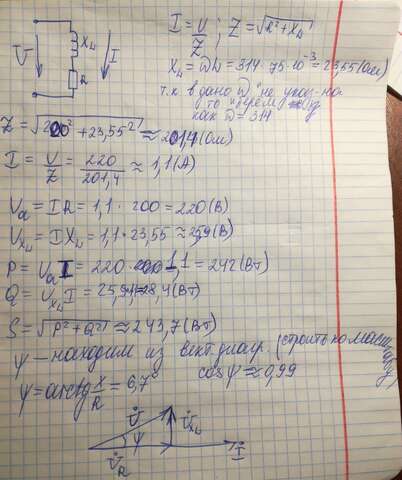 U X_L I R
I = U/Z ; Z = √R²+X_L
X_L = ωL = 314 · 75·10⁻³ = 23,55 (Ом)
т.к в дано ω не указ-на
то берем
как ω = 314
Z = √200² + 23,55² ≈ 201,4 (Ом)
I = U/Z = 220/201,4 ≈ 1,1 (А)
U_a = IR = 1,1 · 200 = 220 (В)
U_XL = IX_L = 1,1 · 23,55 ≈ 25,9 (В)
P = U_a I = 220 · 1,1 = 242 (Вт)
Q = U_XL I = 25,9·1,1=28,4 (Вт)
S = √P²+Q² ≈ 243,7 (Вт)
φ – находим из вект. диаг. (строить по масштабу)
φ = arctg X/R = 6,7° cosφ ≈ 0,99
U̇ U̇_XL
φ
U̇_R İ